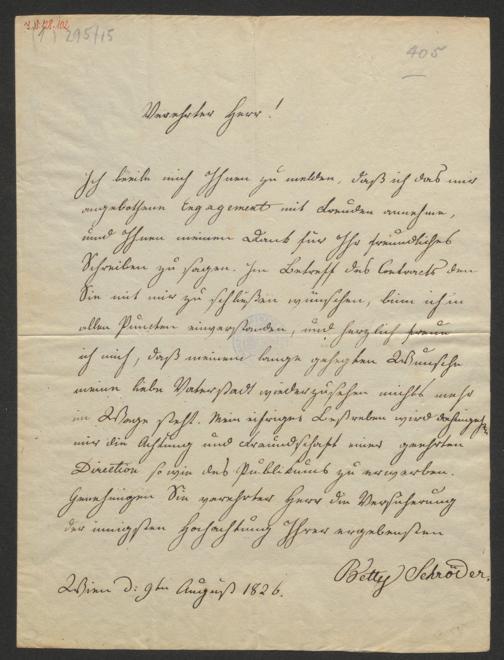 I. N. 128.102
(1) 295/15
405
Verehrter Herr!
Ich beeile mich Ihnen zu melden, daß ich das mir
angebothene Engagement mit Freuden annehme,
und Ihnen meinen Dank für Ihr freundliches
Schreiben zu sagen. Im Betreff des Contracts den
Sie mit mir zu schließen wünschen, binn ich in
allen Puncten einverstanden, und herzlich freue
ich mich, daß meinem lange gehegten Wunsche
meine liebe Vaterstadt wiederzusehen nichts mehr
im Wege steht. Mein eifriges Bestreben wird
mir die Achtung und Freundschaft einer geehrten
Direction so wie des Publikums zu erwerben.
Genehmigen Sie verehrter Herr die Versicherung
der innigsten Hochachtung Ihrer ergebensten
Betty Schröder.
Wien d: 9ten August 1826.